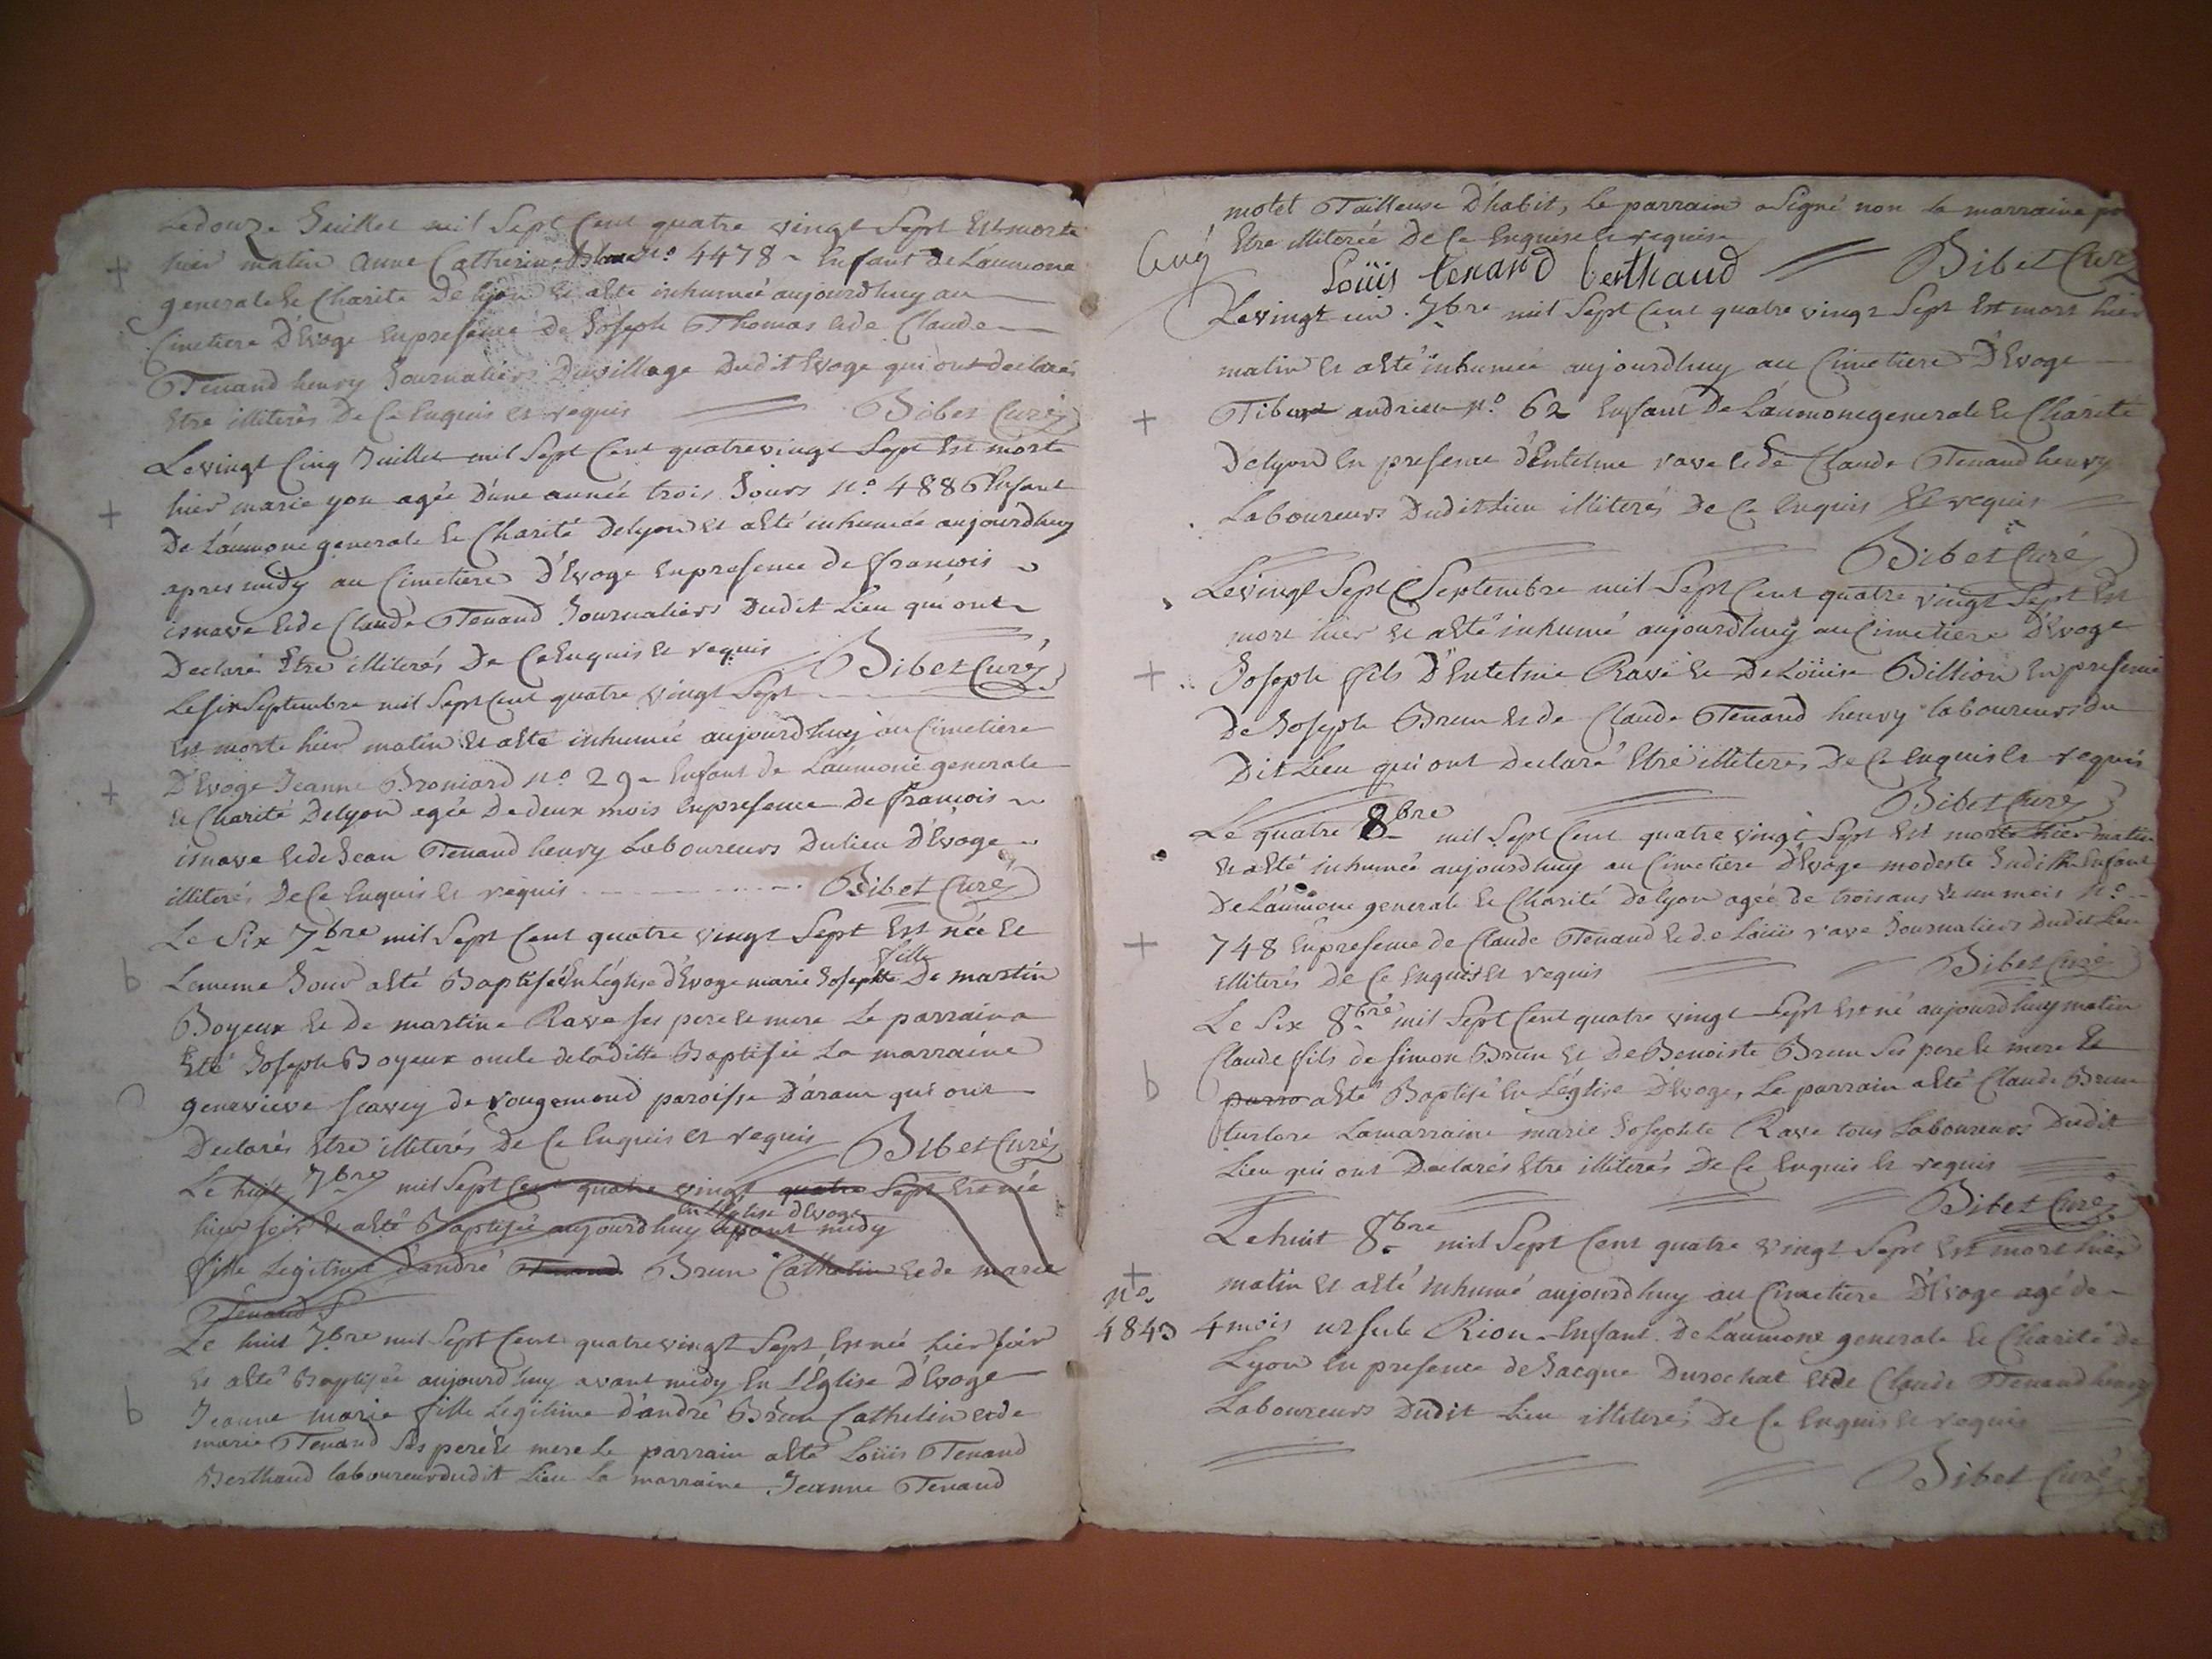 Le douze Juillet mil Sept Cent quatre vingt Sept Est morte
+ hier matin anne Catherine N.o 4478 Enfant de L'aumone
generale & Charité De lyon & a Eté inhumée aujourdhuy au
Cimetiere D'Evoge En presence De Joseph Thomas & de Claude
Tenand henry Journaliers Du village Dudit Evoge qui ont declarés
Etre illiterés De Ce Enquis et requis Bibet Curé
Le vingt Cinq Juillet mil Sept Cent quatre vingt Sept Est morte
+ hier marie yon agée D'une année trois Jours N.o 4886 Enfant
De L'aumone generale & Charité De lyon et a Eté inhumée aujourdhuy
apres midy au Cimetiere D'Evoge En presence de François
isnave & de Claude Tenand Journaliers Dudit Lieu qui ont
Declaré Etre illiterés De Ce Enquis et requis Bibet Curé
Le six Septembre mil Sept Cent quatre vingt Sept
Est morte hier matin & a Eté inhumée aujourdhuy au Cimetiere
+ D'Evoge Jeanne Broniard N.o 29 Enfant de L'aumone generale
& Charité De lyon egée De deux mois En presence De François
isnave & de Jean Tenand henry Laboureurs Du lieu D'Evoge
illiterés De Ce Enquis et requis Bibet Curé
Le Six 7bre mil Sept Cent quatre vingt Sept Est née et
fille
b Le meme Jour a Eté Baptisée En L'église d'Evoge marie Josephte De martin
Boyeux & de martine Rave ses pere & mere Le parrain a
Eté Joseph Boyeux oncle de laditte Baptisée La marraine
genevieve scavey de rougemond paroisse D'aran qui ont
Declarés Etre illiterés De Ce Enquis et requis Bibet Curé
Le huit 7bre mil Sept Cent quatre vingt quatre Sept Est née
en l'église d'Evoge
hier soir & a Eté Baptisée aujourdhuy avant midy
fille Legitime d'andré Tenand Brun Cathelin & de marie
Tenand S
Le huit 7bre mil Sept Cent quatre vingt Sept Est née hier soir
et a Eté Baptisée aujourdhuy avant midy En L'Eglise D'Evoge
b Jeanne marie fille Legitime d'andré Brun Cathelin & de
marie Tenand Ses pere & mere Le parrain a Eté Loüis Tenand
Berthaud laboureur dudit Lieu La marraine Jeanne Tenand
motet Tailleuse D'habit, Le parrain a Signé non la marraine po
Etre illiterée De Ce Enquise & requise
Loüis tenand berthaud Bibet Curé
Le vingt un 7bre mil Sept Cent quatre vingt Sept Est mort hier
matin et a Eté inhumée aujourdhuy au Cimetiere D'Evoge
+ andrieu N.o 62 Enfant De L'aumone generale & Charité
De lyon En presence d'Entelme rave & de Claude Tenand henry
Laboureurs Dudit Lieu illiterés De Ce Enquis et requis
Bibet Curé
Le vingt Sept Septembre mil Sept Cent quatre vingt Sept Est
mort hier & a Eté inhumé aujourdhuy au Cimetiere D'Evoge
+ Joseph fils D'Entelme Rave & De Loüise Billion En presence
De Joseph Brun & de Claude Tenand henry laboureurs du
Dit Lieu qui ont declaré Etre illiterés De Ce Enquis et requis
Bibet Curé
Le quatre 8bre mil Sept Cent quatre vingt Sept Est morte hier matin
& a Eté inhumée aujourdhuy au Cimetiere D'Evoge modeste Judith Enfant
De L'aumone generale & Charité De lyon agée de trois ans & un mois N.o
+ 748 En presence de Claude Tenand & de Loüis rave Journaliers Dudit Lieu
illiterés De Ce Enquis et requis Bibet Curé
Le Six 8bre mil Sept Cent quatre vingt Sept Est né aujourdhuy matin
Claude fils de Simon Brun & De Benoiste Brun Ses pere & mere &
b parra a Eté Baptisé En L'église D'Evoge, Le parrain a Eté Claude Brun
turlore La marraine marie Josephte Rave tous Laboureurs Dudit
Lieu qui ont Declarés Etre illiterés De Ce Enquis et requis
Bibet Curé
Le huit 8bre mil Sept Cent quatre vingt Sept Est mort hier
+ matin et a Eté inhumé aujourdhuy au Cimetiere D'Evoge agé de
N.o 4843 4 mois ursule Rion Enfant De L'aumone generale & Charité De
Lyon En presence de Jacque Durochat & de Claude Tenand henry
Laboureurs Dudit Lieu illiterés De Ce Enquis et requis
Bibet Curé